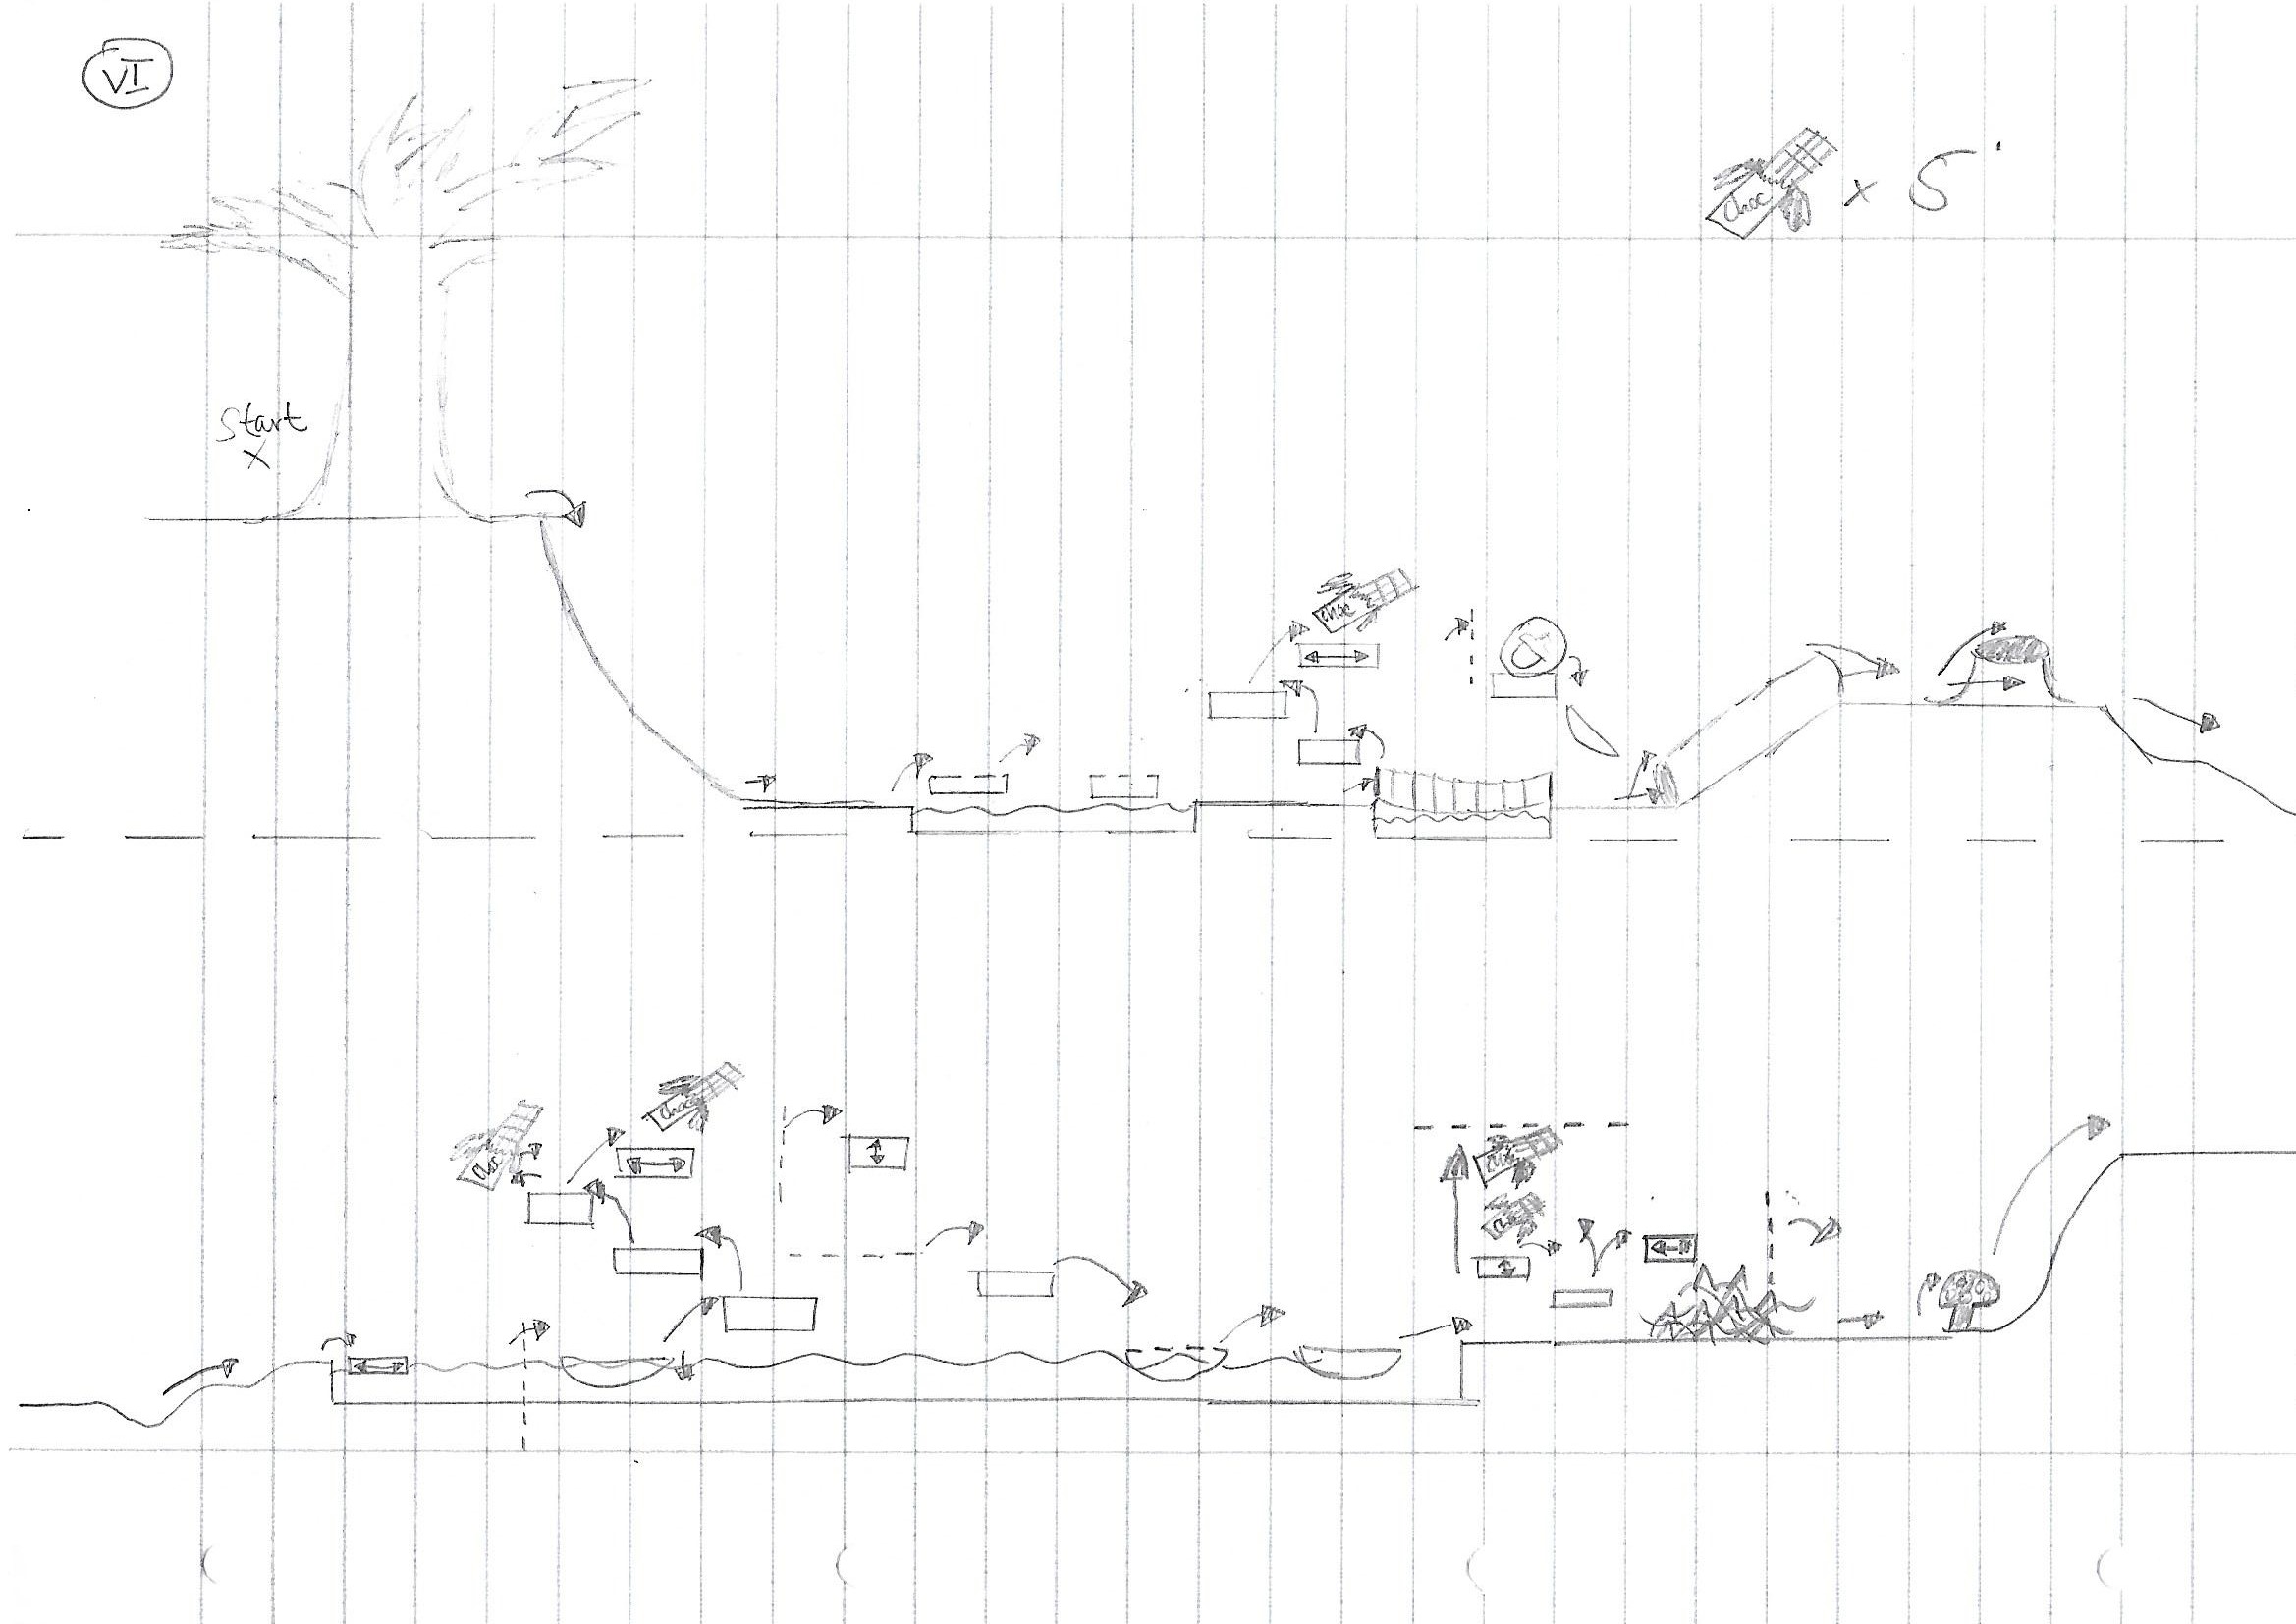 VI
choc x 5
start
x
choc
choc
choc
choc
choc